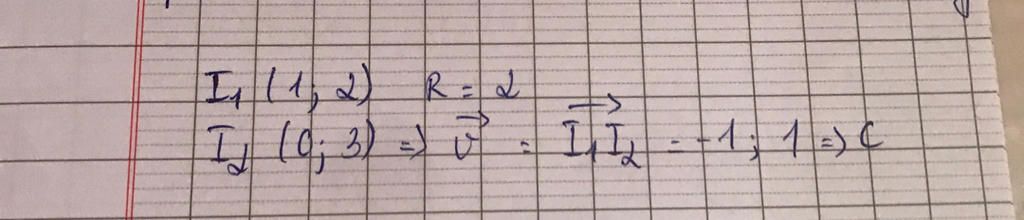 I₁ (1; 2) R = 2
I₂ (0; 3) => v⃗ = I₁I₂⃗ = -1; 1 => C